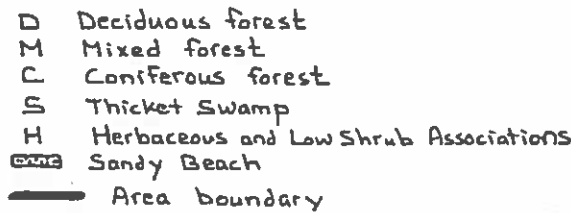 D Deciduous forest
M Mixed forest
C Coniferous forest
S Thicket Swamp
H Herbaceous and Low Shrub Associations
Sandy Beach
Area boundary